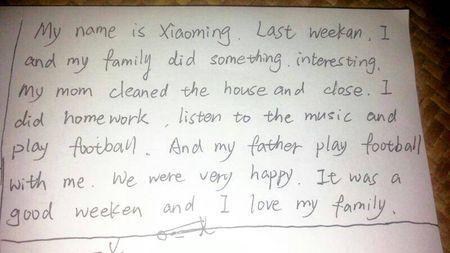 My name is Xiaoming. Last weekan, I
and my family did something interesting.
My mom cleaned the house and close. I
did homework, listen to the music and
play football. And my father play football
with me. We were very happy. It was a
good weeken and I love my family.